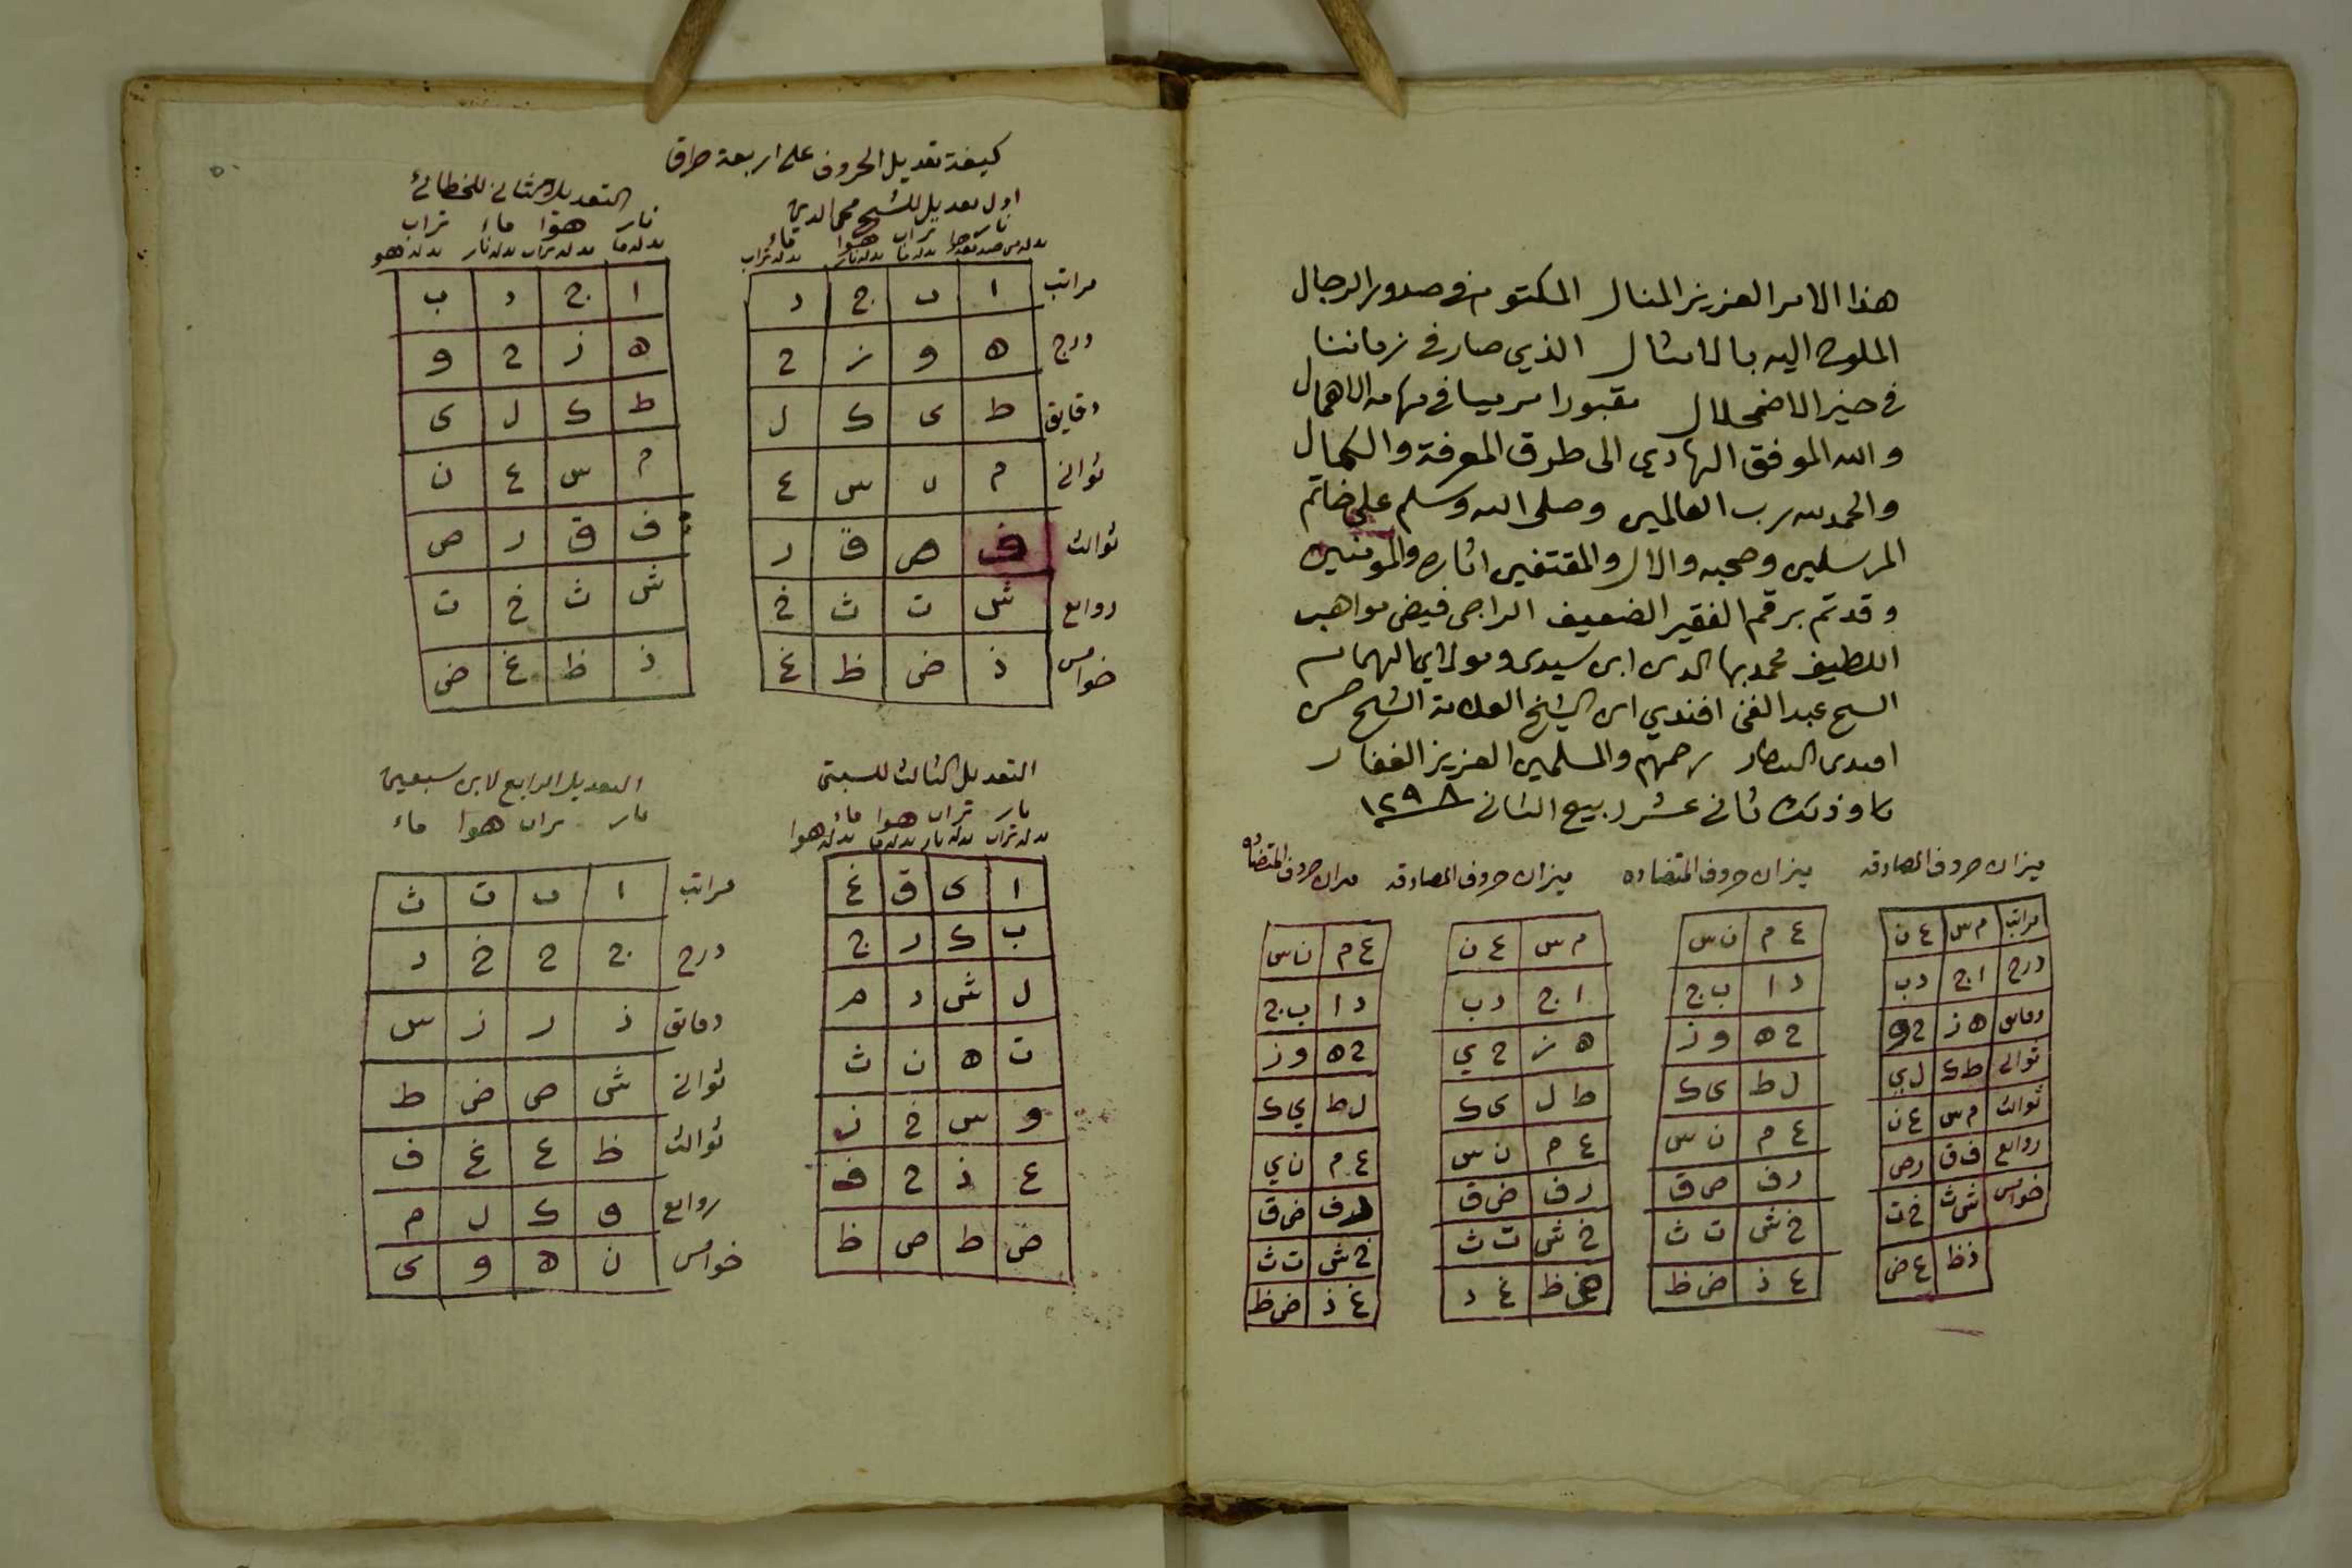 هذا الامر العزيز المنال المكتوم في صدور الرجال
الملوح اليه بالامثال الذي صار في زماننا
في حيز الاضمحلال مقبورا مرميا في مهامه الاهمال
والله الموفق الهادي الى طرق المعرفة والكمال
والحمد لله رب العالمين وصلى الله وسلم على خاتم
المرسلين وصحبه والال والمقتفين اثاره والمومنين
وقد تم برقم الفقير الضعيف الراجى فيض مواهب
اللطيف محمد بها الدين ابن سيدى ومولاي الهمام
الشيخ عبد الغنى افندي ابن الشيخ العلامة الشيخ حسن
افندى البيطار رحمهم والمسلمين العزيز الغفار
وذلك ثانى عشر ربيع الثانى ١٢٩٨
ميزان حروف المصادقه
مراتب م س ع ن
درج ا ج د ب
دقايق ه ز ح و
ثوانى ط ك ل ي
ثوالث م س ع ن
روابع ف ق ر ص
خوامس ش ث خ ت
ذ ظ غ ض
ميزان حروف المتضاده
ع م ن س
د ا ب ج
ح ه و ز
ل ط ى ك
ع م ن س
ر ف ص ق
خ ش ت ث
غ ذ ض ظ
ميزان حروف المصادقه
م س ع ن
ا ج د ب
ه ز ح ي
ط ل ى ك
ع م ن س
ر ف ض ق
خ ش ت ث
ظ غ د
ميزان حروف المتضاده
ع م ن س
د ا ب ج
ح ه و ز
ل ط ي ك
ع م ن ي
ر ف ض ق
خ ش ت ث
غ ذ ض ظ
كيفة تعديل الحروف على اربعة طرق
اول تعديل للشيخ محى الدين
نار تراب هوا ماء
مراتب ا ب ج د
درج ه و ز ح
دقايق ط ى ك ل
ثوانى م ن س ع
ثوالث ف ص ق ر
روابع ش ت ث خ
خوامس ذ ض ظ غ
التعديل الثانى للخطائى
نار هوا ماء تراب
ا ج د ب
ه ز ح و
ط ك ل ى
م س ع ن
ف ق ر ص
ش ث خ ت
ذ ظ غ ض
التعديل الثالث للسبتى
نار تراب هوا ماء
ا ى ق غ
ب ك ر ج
ل ش د م
ت ه ن ث
و س خ ز
ع ذ ح ف
ض ط ص ظ
التعديل الرابع لابن سبعين
نار تراب هوا ماء
مراتب ا ب ت ث
درج ج ح خ د
دقايق ذ ر ز س
ثوانى ش ص ض ط
ثوالث ظ ع غ ف
روابع ق ك ل م
خوامس ن ه و ى